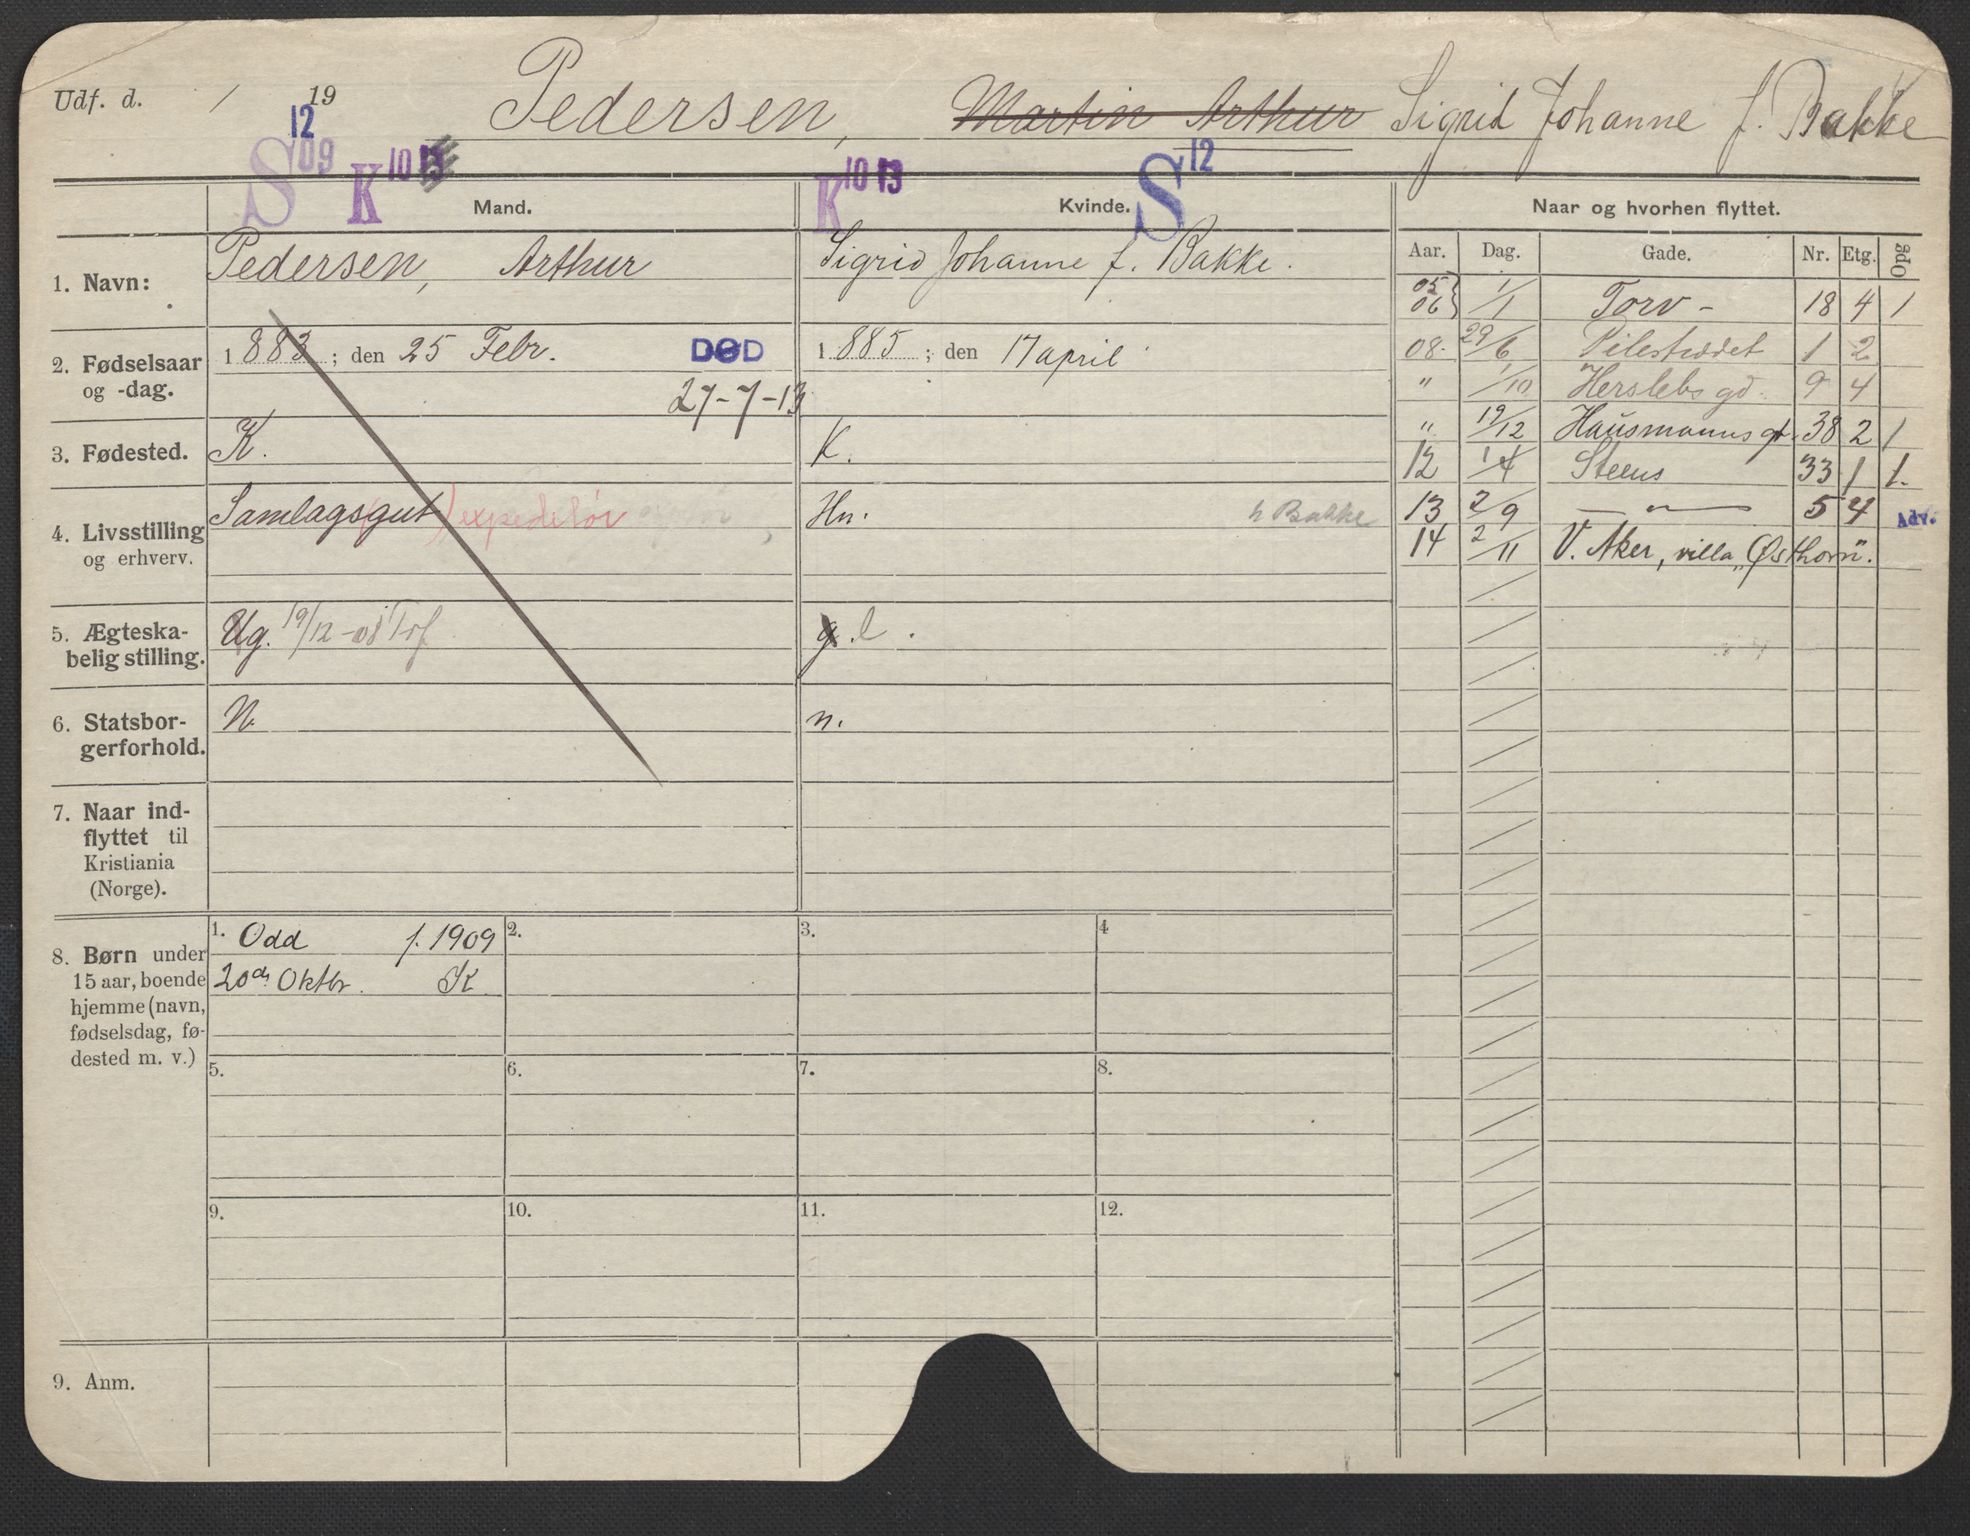 Udf. d. / 19 Pedersen, Martin Arthur Sigrid Johanne f. Bakke
12
S 09 K 10 13 K 10 13 S 12
Mand. Kvinde. Naar og hvorhen flyttet.
Aar. Dag. Gade. Nr. Etg. Opg
1. Navn: Pedersen, Arthur Sigrid Johanne f. Bakke.
2. Fødselsaar og -dag.
1883; den 25 Febr. DØD 1885; den 17 april
27-7-13
3. Fødested. K. K.
4. Livsstilling og erhverv.
Samlagsgut) expeditør Hn. h Bakke
5. Ægteska-
belig stilling.
Ug. 19/12-08 Trf. g. l.
6. Statsbor-
gerforhold.
N n.
7. Naar ind-
flyttet til
Kristiania
(Norge).
8. Børn under
15 aar, boende
hjemme (navn,
fødselsdag, fø-
dested m. v.)
1. Odd f. 1909 2. 3. 4
20de Oktbr. K
5. 6. 7. 8.
9. 10. 11. 12.
9. Anm.
05 1/1
06 Torv - 18 4 1
08. 29/6 Pilestrædet 1 2
" 1/10 Herslebs gd. 9 4
" 19/12 Hausmanns gt. 38 2 1
12 14/4 Steens 33 1 1.
13 2/9 — " — 5 4 Adv.
14 2/11 V. Aker, villa „Østhorn".